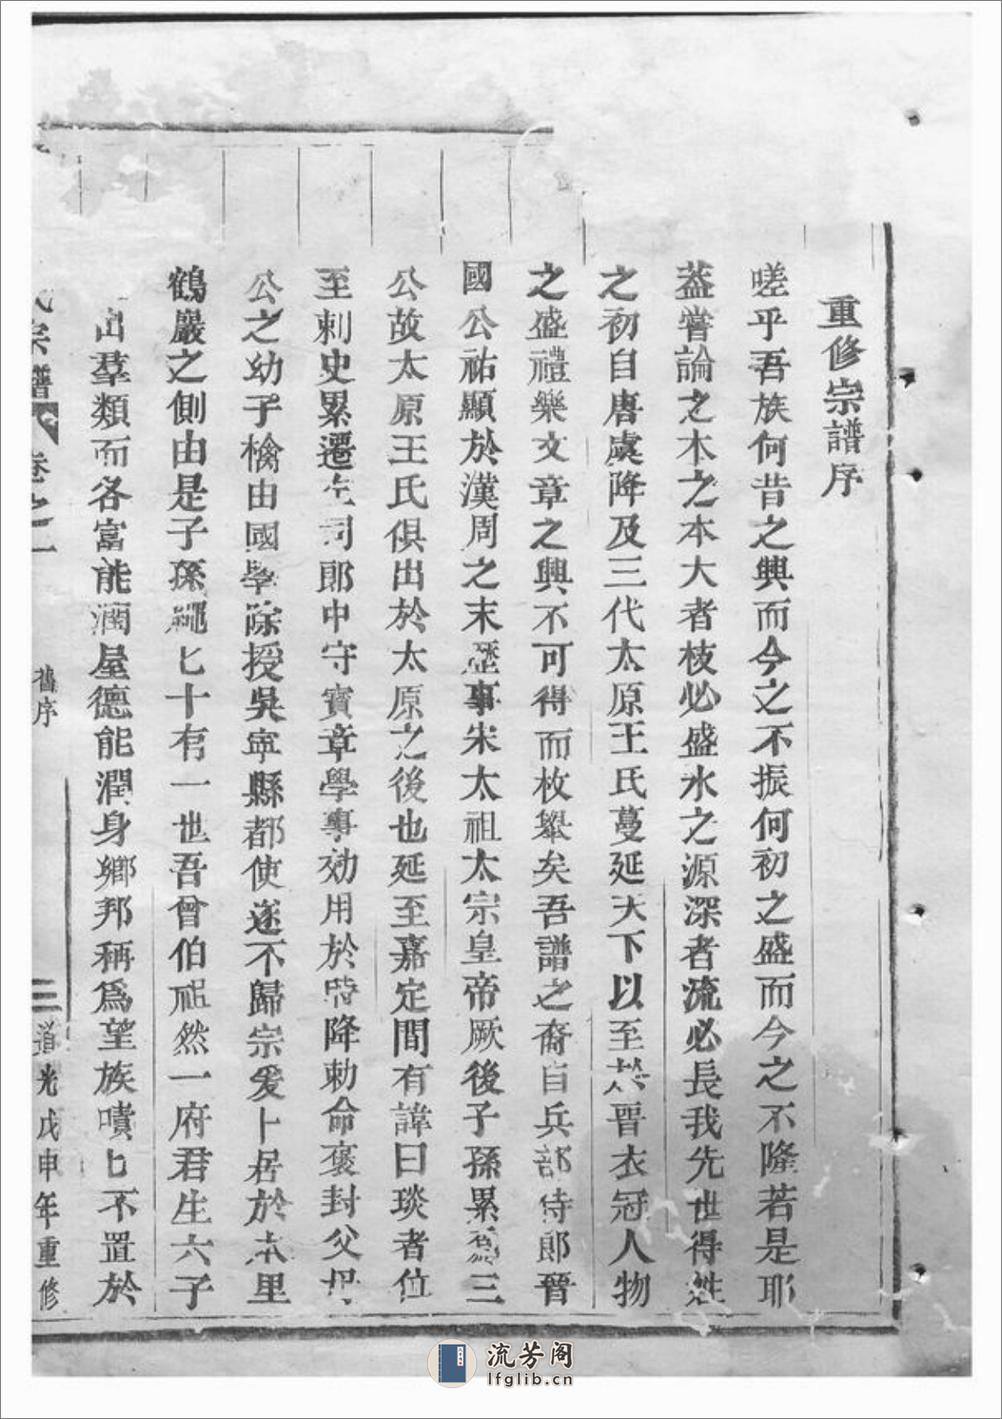 重修宗譜序
嗟乎吾族何昔之興而今之不振何初之盛而今之不隆若是耶
葢嘗論之木之本大者枝必盛水之源深者流必長我先世得姓
之初自唐虞降及三代太原王氏蔓延天下以至於晋衣冠人物
之盛禮樂文章之興不可得而枚舉矣吾譜之裔自兵部侍郎晉
國公祐顯於漢周之末歷事宋太祖太宗皇帝厥後子孫累爲三
公故太原王氏俱出於太原之後也延至嘉定間有諱曰琰者位
至刺史累遷左司郎中守寳章學事効用於時降勅命褒封父母
公之幼子檎由國學除授吳寧縣都使遂不歸宗爰卜居於本里
鶴巖之側由是子孫繩匕十有一世吾曾伯祖然一府君生六子
出羣類而各富能潤屋德能潤身鄉邦稱爲望族嘖匕不置於
氏宗譜 卷之一 舊序 三 道光戊申年重修
流芳阁
lfglib.cn